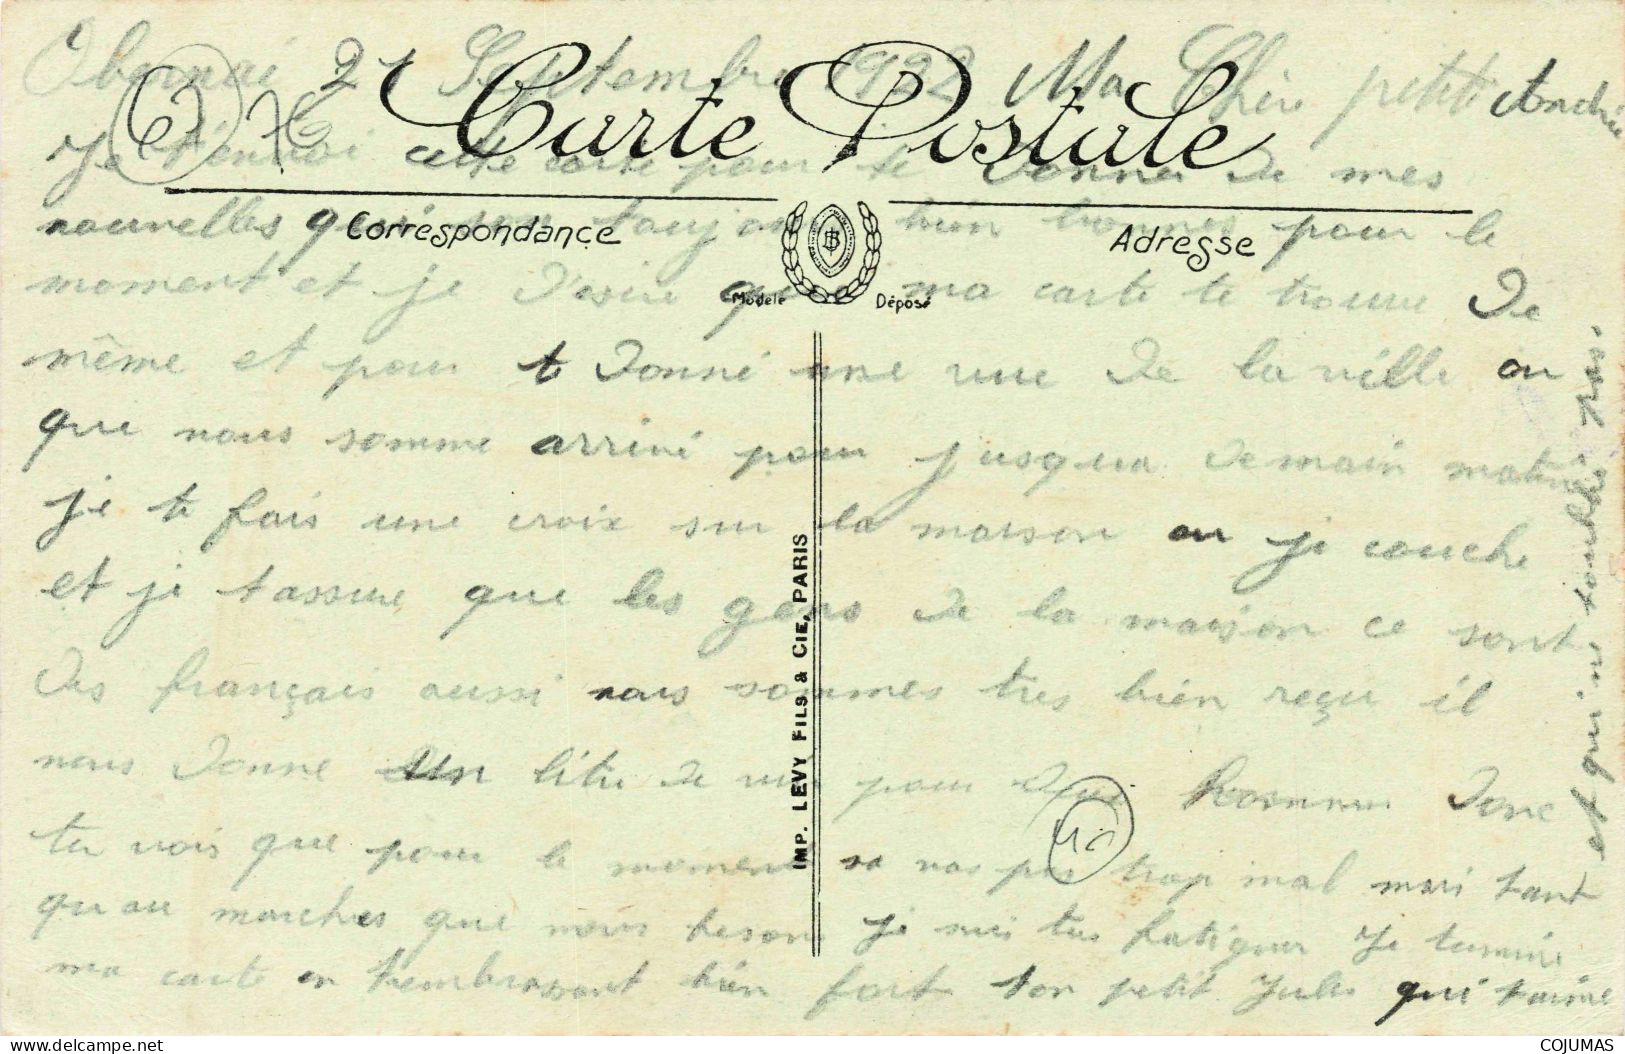 Obernai 21 Septembre 1922 Ma Chère petite Andrée
Carte Postale
Je t'envoi cette carte pour te donner de mes
Correspondance
Adresse
nouvelles qui son toujours bien bonnes pour le
moment et je desire que ma carte te trouve de
Modèle Déposé
même et pour t donné une vue de la ville ou
que nous somme arrivé pour jusqua demain matin
je te fais une croix sur la maison ou je couche
et je tassure que les gens de la maison ce sont
des français aussi nous sommes tres bien reçu il
nous donne un litre de vin pour donc
tu vois que pour le moment sa vas pas trop mal mais tant
qu au marches que nous fesons je suis tres fatiguer Je termine
ma carte en tembrassant bien fort ton petit Jules qui taime
et qui ne toublie pas.
IMP. LEVY FILS & CIE, PARIS
COJUMAS